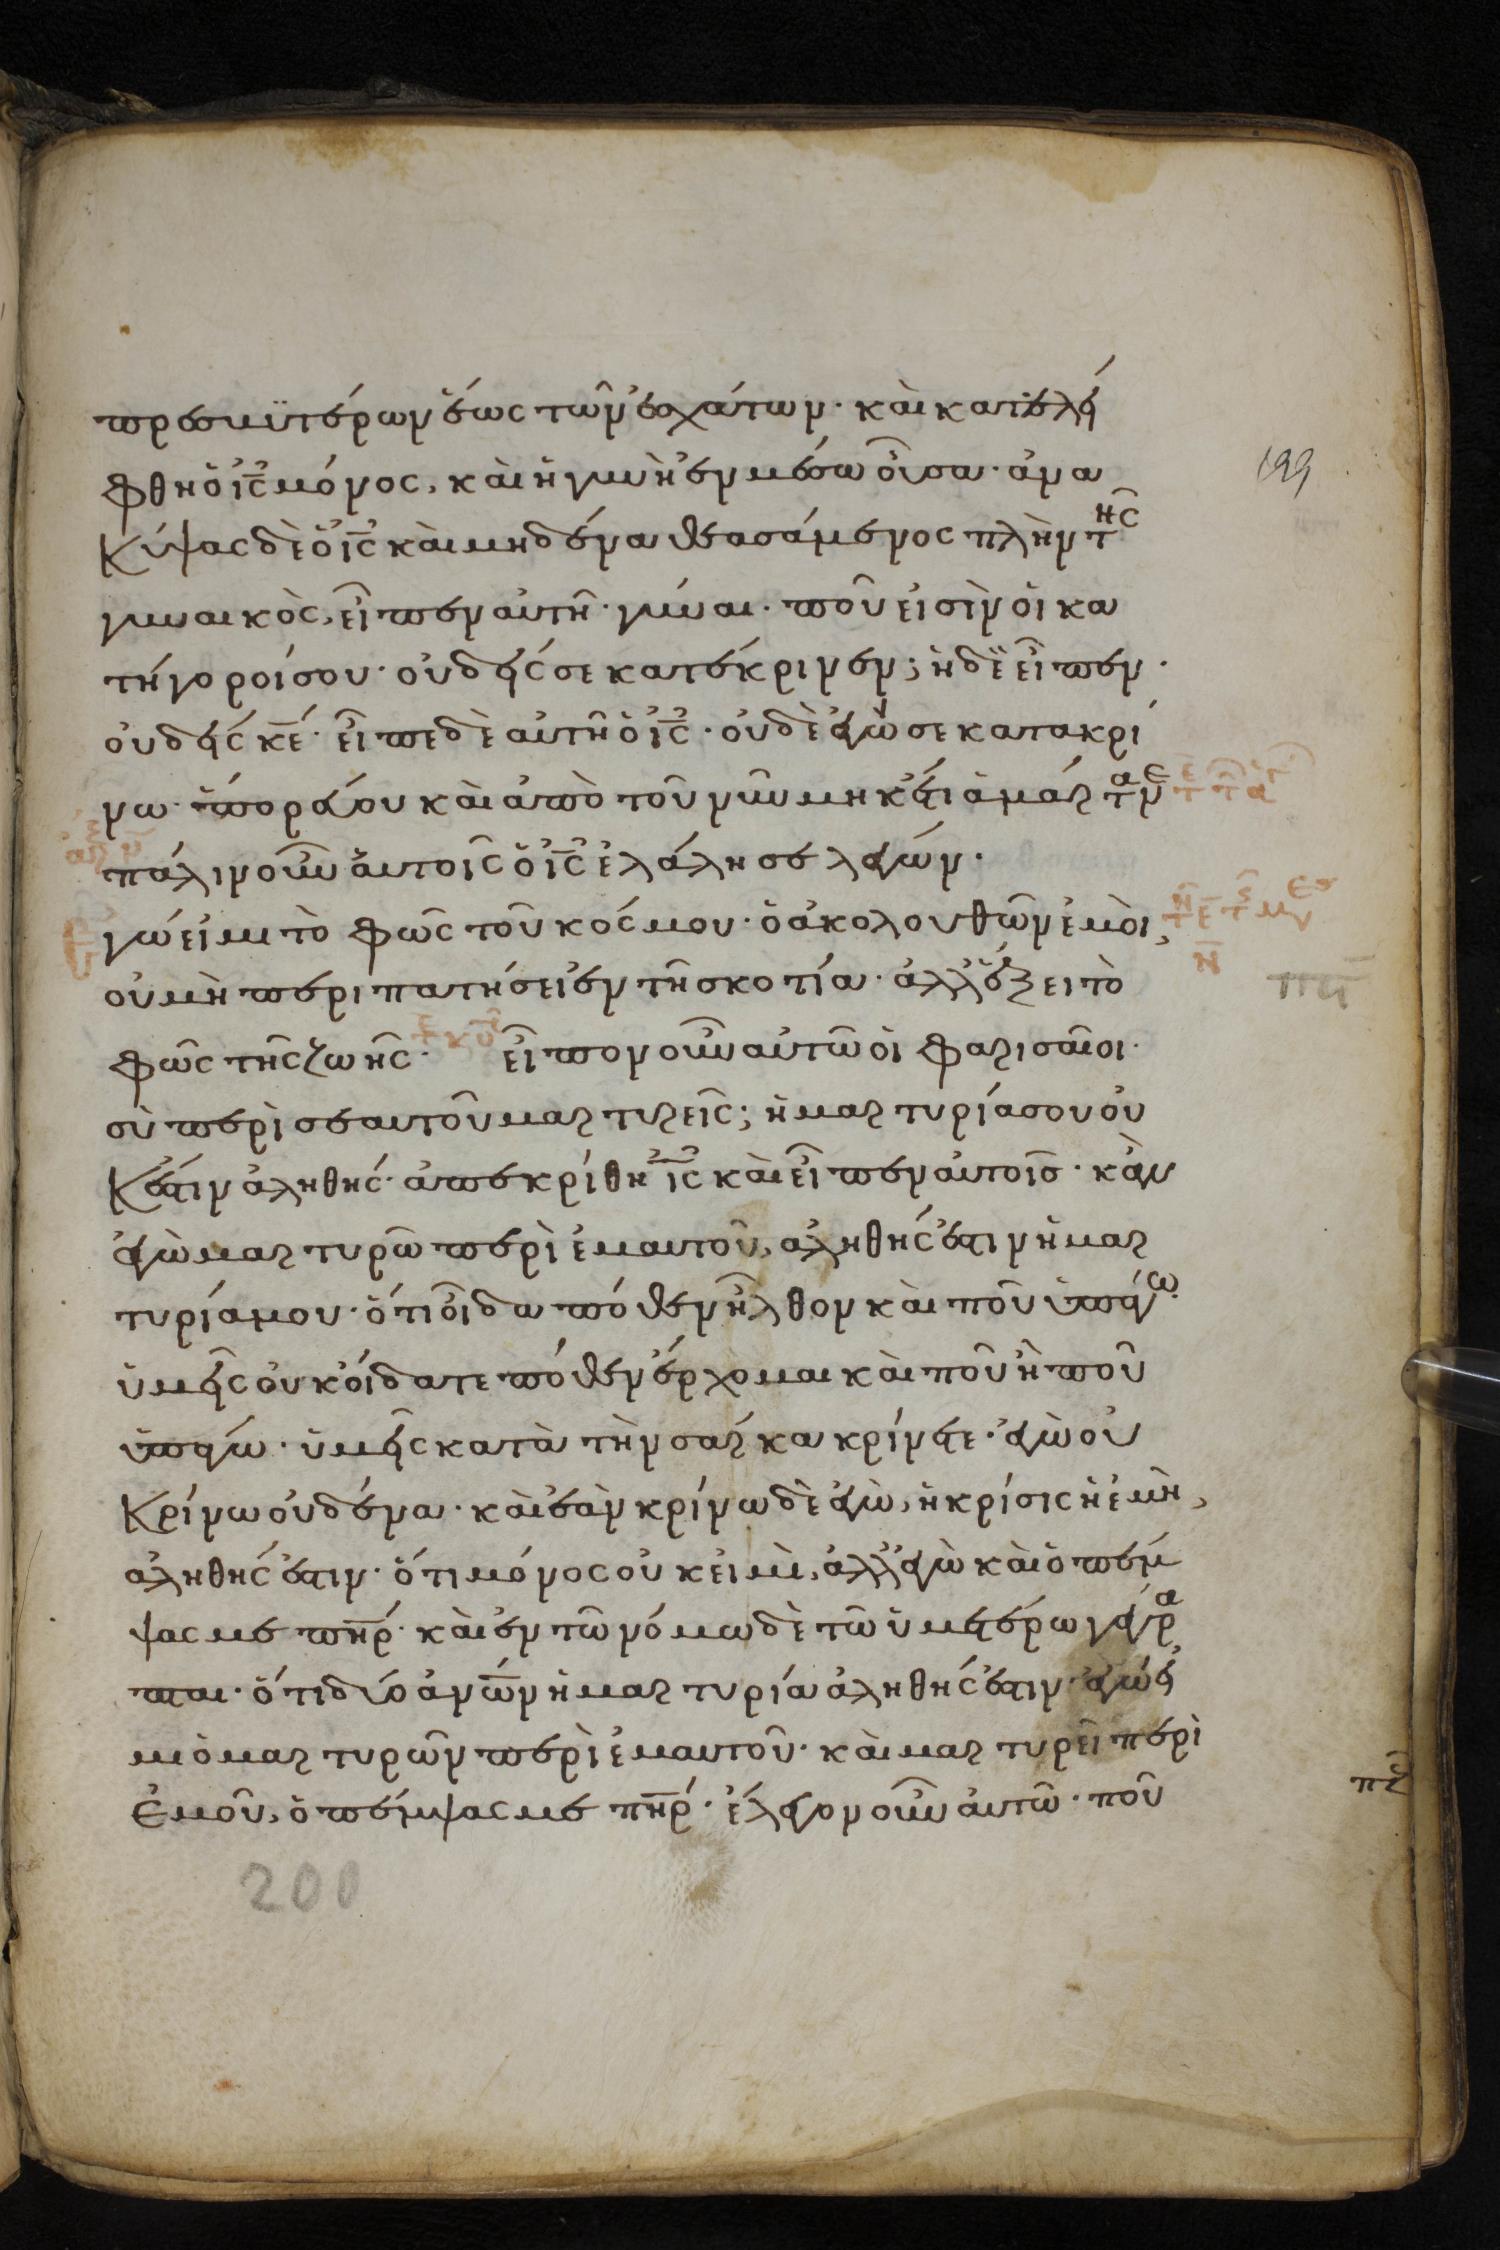 πρεσβυτέρων ἕως τῶν ἐσχάτων· καὶ κατελεί
φθη ὁ ἰ̅ς̅ μόνος, καὶ ἡ γυνὴ ἐν μέσω οὖσα· ἀνα
199
κύψας δὲ ὁ ἰ̅ς̅ καὶ μηδένα θεασάμενος πλὴν τῆς
γυναικὸς, εἶπεν αὐτῆ· γύναι· ποῦ εἰσὶν οἱ κα
τήγοροί σου· οὐδείς σε κατέκρινεν; ἡ δὲ εἶπεν·
οὐδείς κ̅ε̅· εἶπε δὲ αὐτῆ ὁ ἰ̅ς̅· οὐδὲ ἐγώ σε κατακρί
νω· πορεύου καὶ ἀπὸ τοῦ νῦν μηκέτι ἁμάρτανε
πάλιν οὖν αὐτοῖς ὁ ἰ̅ς̅ ἐλάλησε λέγων·
ἐγώ εἰμι τὸ φῶς τοῦ κόσμου· ὁ ἀκολουθῶν ἐμὸι,
οὐ μὴ περιπατήσει ἐν τῆ σκοτία· ἀλλ' ἕξει τὸ
φῶς τῆς ζωῆς· εἶπον οὖν αὐτῶ οἱ φαρισαῖοι·
σὺ περὶ σεαυτοῦ μαρτυρεῖς; ἡ μαρτυρία σου οὐ
κ ἔστιν ἀληθής· ἀπεκρίθη ἰ̅ς̅ καὶ εἶπεν αὐτοῖς· κἂν
ἐγὼ μαρτυρῶ περὶ ἐμαυτοῦ, ἀληθής ἐστιν ἡ μαρ
τυρία μου· ὅτι οἶδα πόθεν ἦλθον καὶ ποῦ ὑπάγω·
ὑμεῖς οὐκ οἴδατε πόθεν ἔρχομαι καὶ ποῦ ἢ ποῦ
ὑπάγω· ὑμεῖς κατὰ τὴν σάρκα κρίνετε· ἐγὼ οὐ
κρίνω οὐδένα· καὶ ἐὰν κρίνω δὲ ἐγὼ, ἡ κρίσις ἡ ἐμὴ,
ἀληθής ἐστιν· ὅτι μόνος οὐκ εἰμὶ, ἀλλ' ἐγὼ καὶ ὁ πέμ
ψας με π̅η̅ρ̅· καὶ ἐν τῶ νόμω δὲ τῶ ὑμετέρω γέγρα
πται· ὅτι δύο ἀν̅ω̅ν̅ ἡ μαρτυρία ἀληθής ἐστιν· ἐγώ εἰ
μι ὁ μαρτυρῶν περὶ ἐμαυτοῦ· καὶ μαρτυρεῖ περὶ
ἐμοῦ, ὁ πέμψας με π̅η̅ρ̅· ἔλεγον οὖν αὐτῶ· ποῦ
200